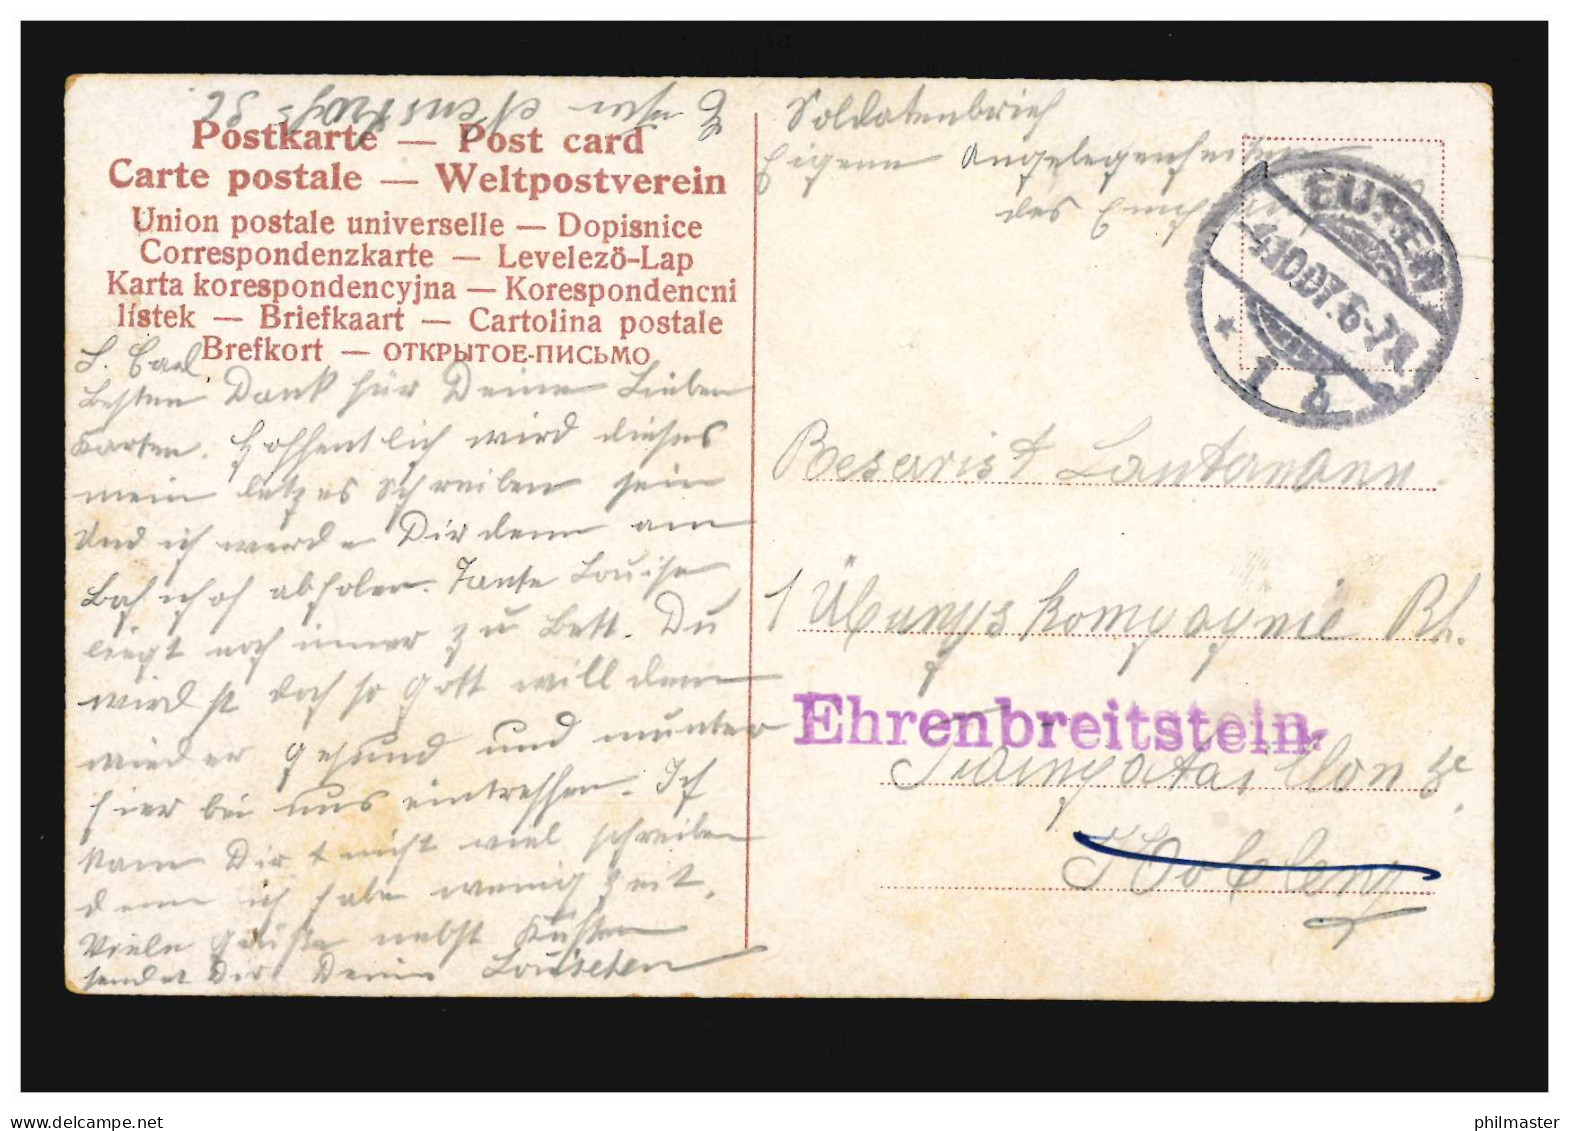 Postkarte — Post card
Carte postale — Weltpostverein
Union postale universelle — Dopisnice
Correspondenzkarte — Levelezö-Lap
Karta korespondencyjna — Korespondencni
lístek — Briefkaart — Cartolina postale
Brefkort — ОТКРЫТОЕ-ПИСЬМО
L. Carl
Besten Dank für Deine Lieben
Karten. Hoffentlich wird dieses
mein letzes Schreiben sein
Und ich werde Dir denn am
Bahnhof abholen. Tante Louise
liegt noch immer zu Bett. Du
wirdst doch so Gott will dann
wieder gesund und munter
hier bei uns eintreffen. Ich
kann Dir nicht viel schreiben
denn ich habe wenig Zeit.
Viele Grüße nebst Küssen
sendet Dir Deine Louischen
Soldatenbrief
Eigene Angelegenheiten
des Empf
EUPEN
4.10.07.6-7N
* 1 b
Reservist Lautemann
1 Übungs Kompagnie Rh.
Ehrenbreitstein
Koblenz
philmaster auf delcampe.net
philmaster